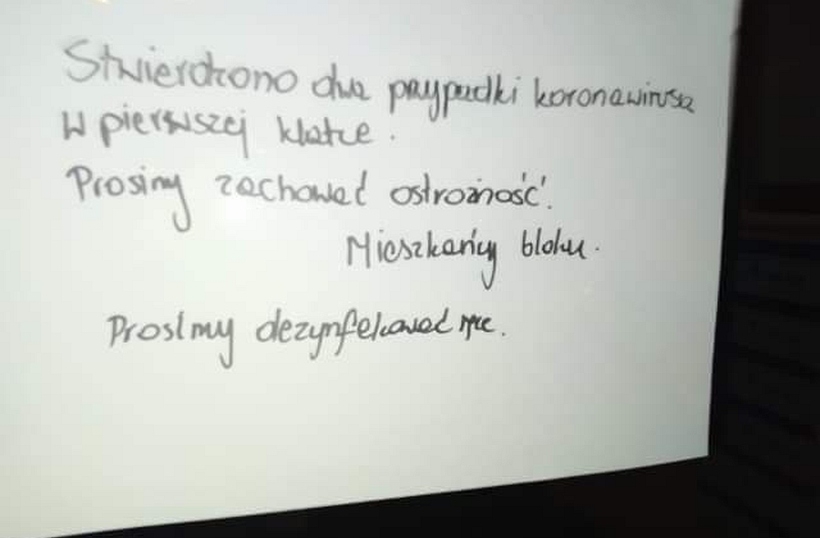 Stwierdzono dwa przypadki koronawirusa
w pierwszej klatce.
Prosimy zachować ostrożność.
Mieszkańcy bloku.
Prosimy dezynfekować ręce.